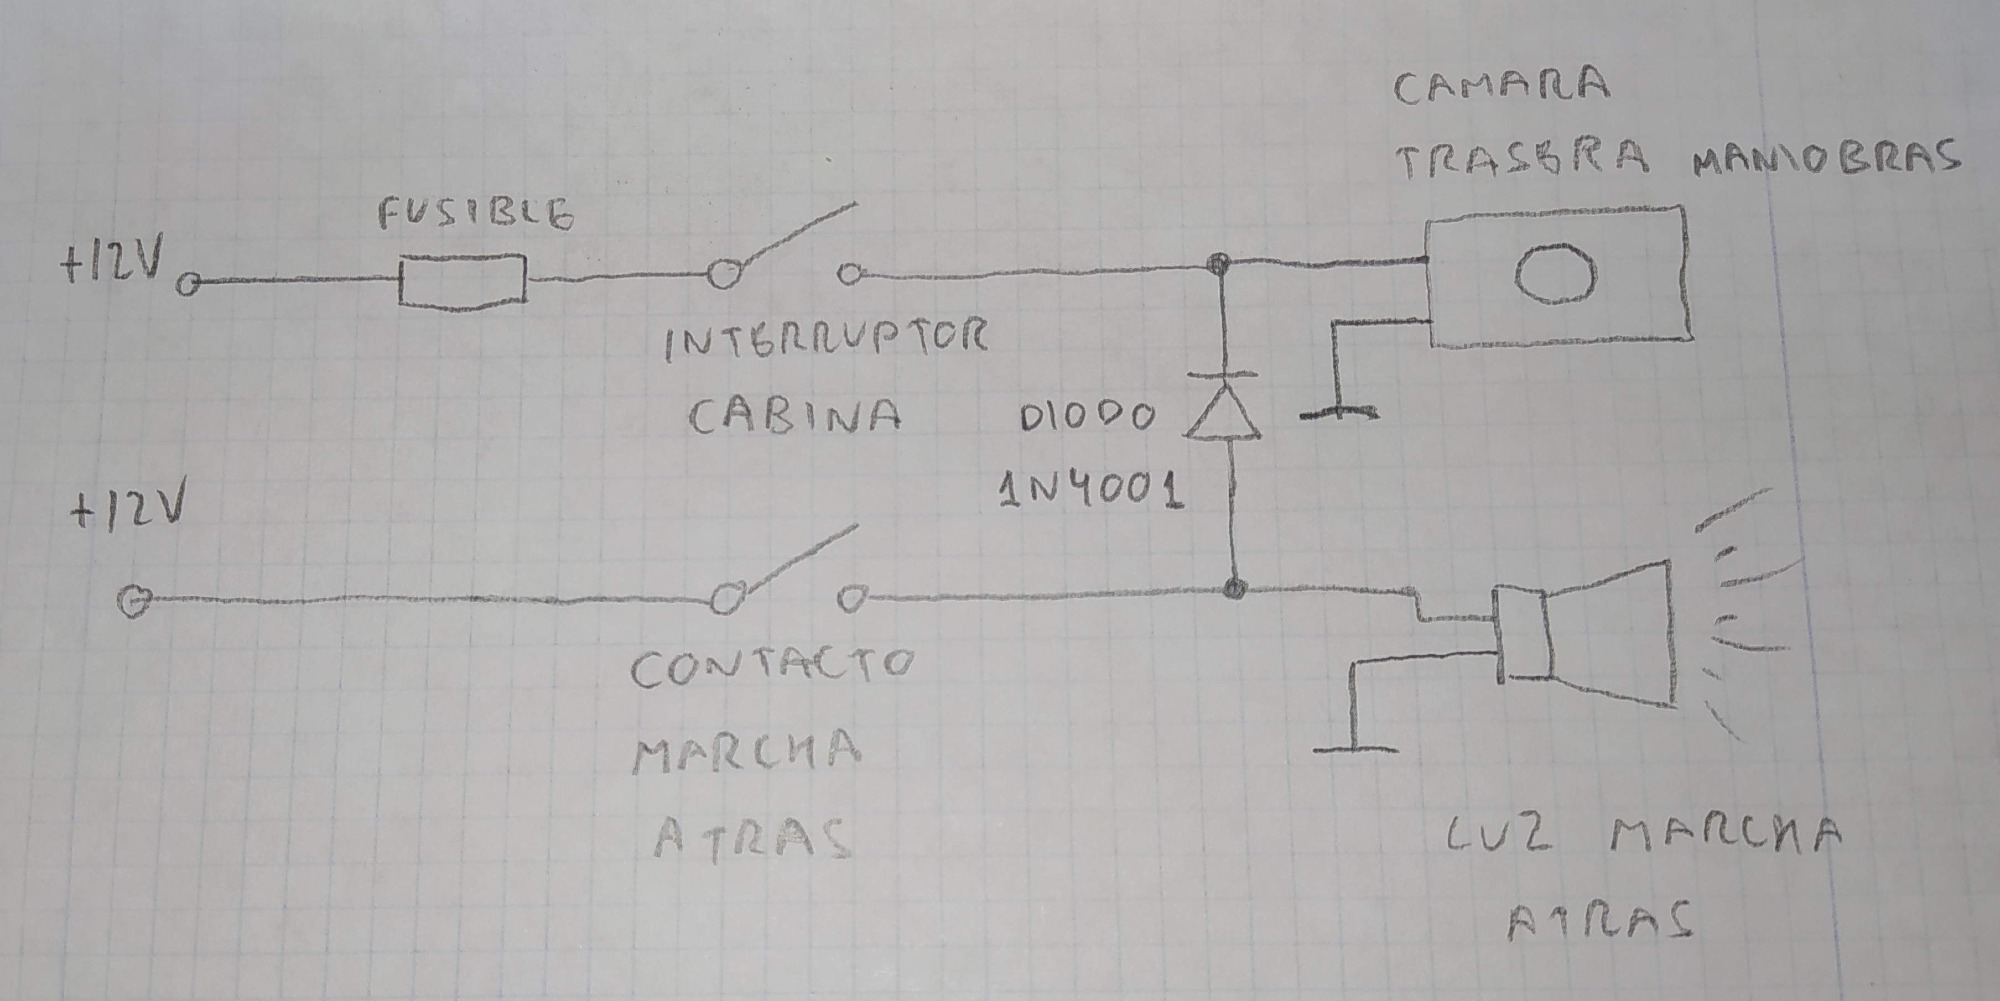 CAMARA
TRASERA MANIOBRAS
FUSIBLE
+12V
INTERRUPTOR
CABINA
DIODO
1N4001
+12V
CONTACTO
MARCHA
ATRAS
LUZ MARCHA
ATRAS